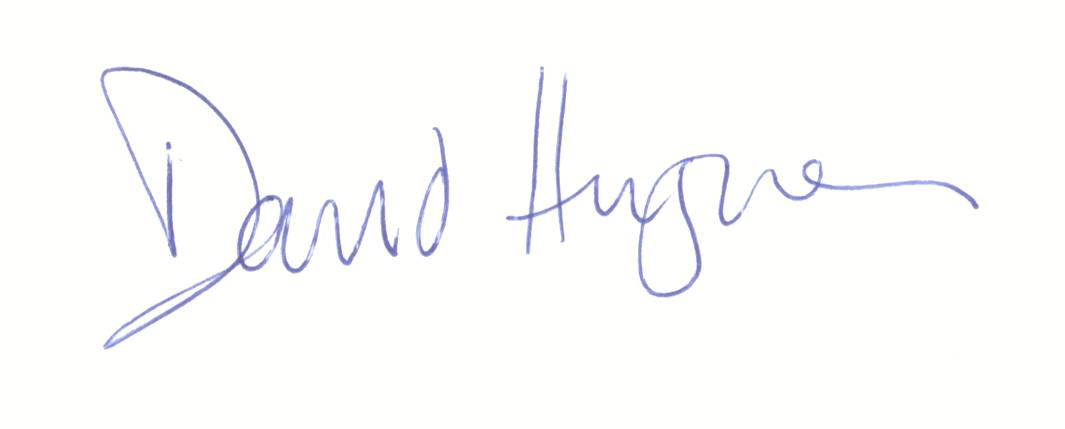 David Hughes